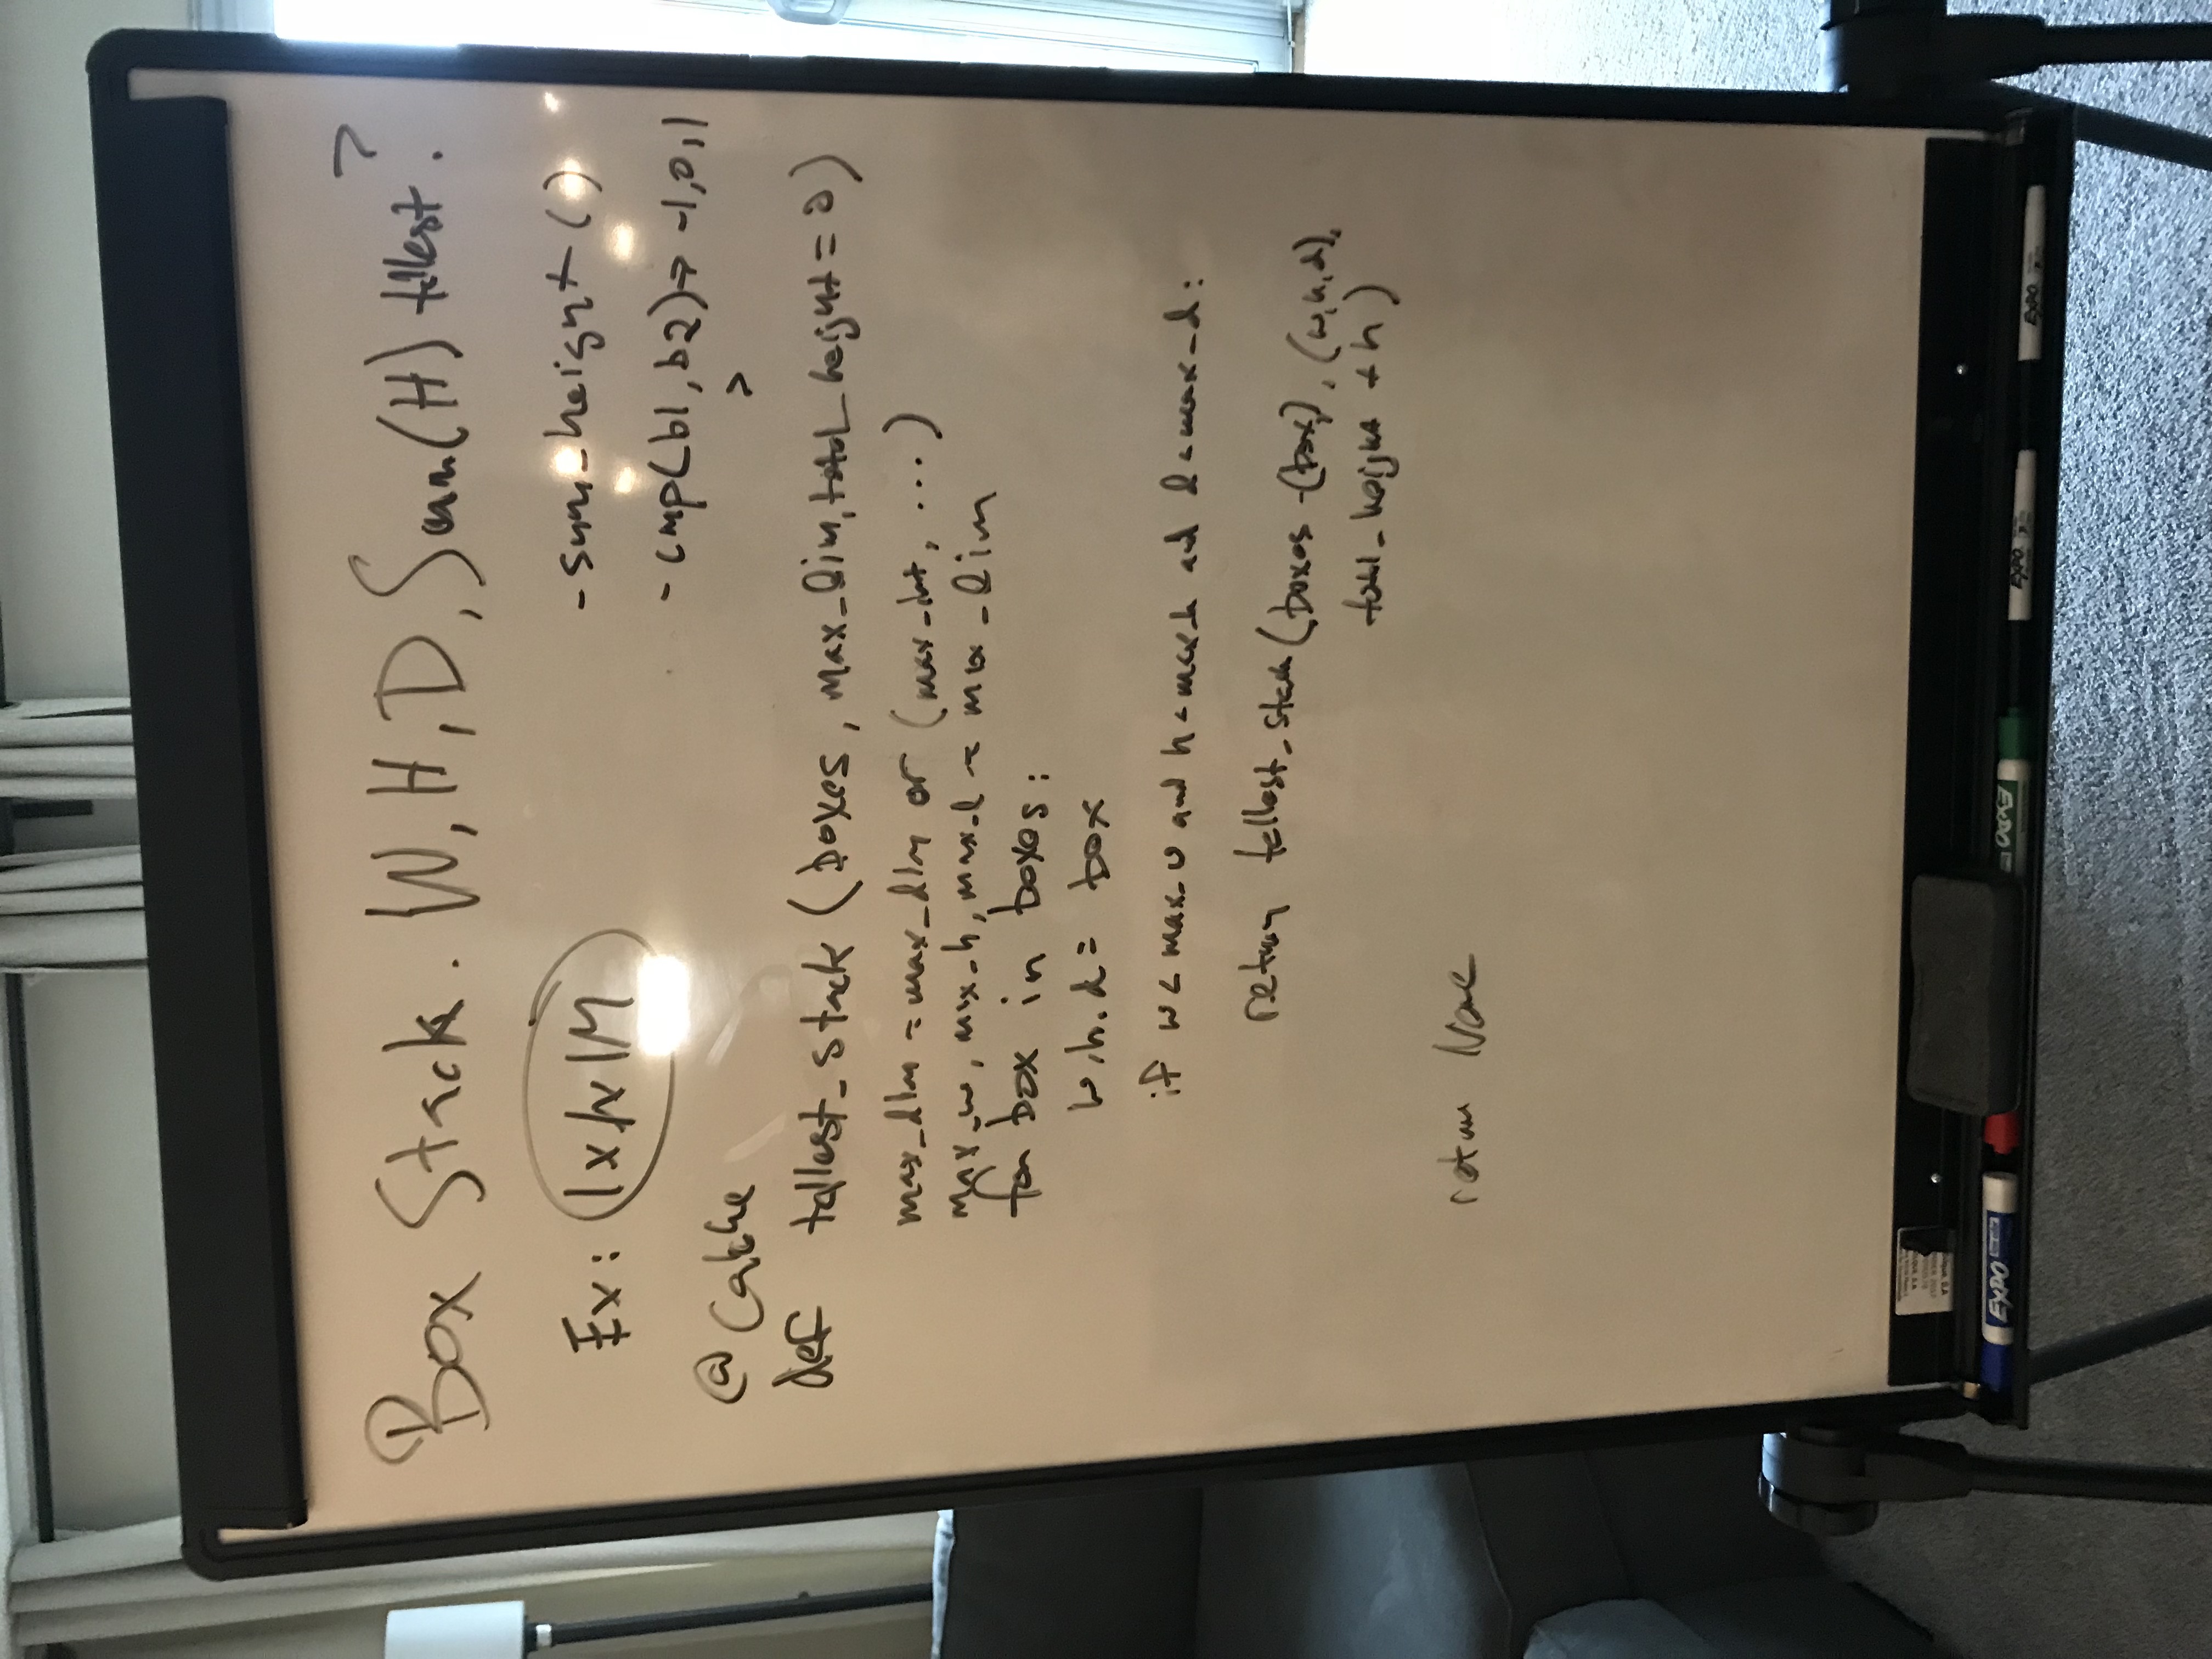 Box Stack. W, H, D, Sum(H) tallest?
Ex: 1x1x1M
- sum_height ()
- cmp(b1, b2) → -1,0,1
>
@ Cache
def tallest_stack (boxes, max_dim, total_height = 0)
max_dim = max_dim or (max_int, ...)
max_w, max_h, max_d = max_dim
for box in boxes:
w,h,d = box
if w < max_w and h < max_h and d < max_d:
return tallest_stack (boxes - (box), (w,h,d),
total_height + h )
return None
EXPO
EXPO
EXPO
EXPO